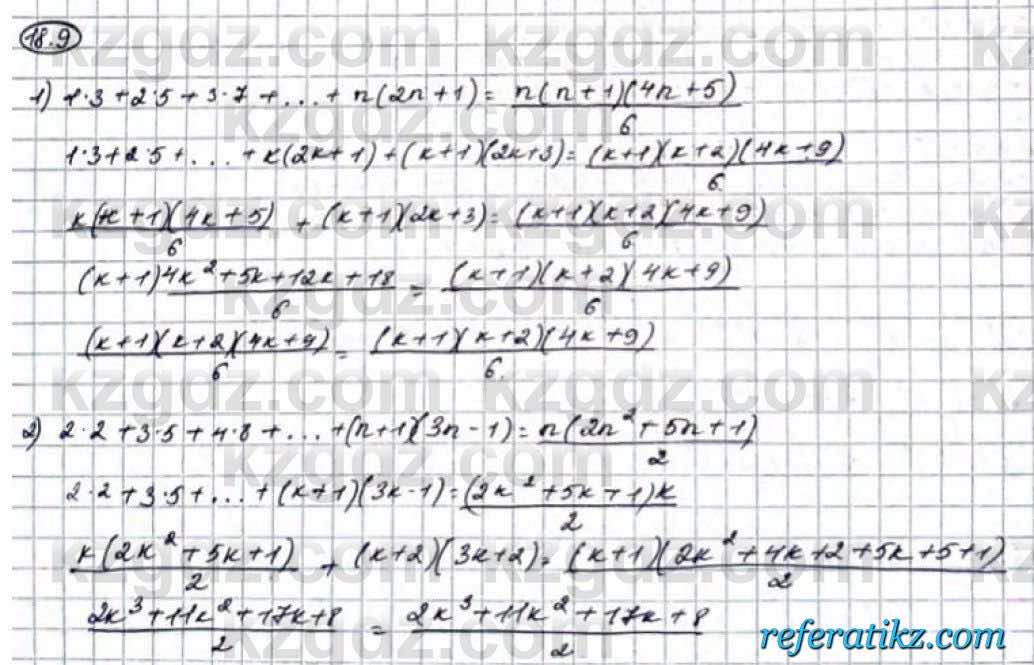 18.9
1) 1·3+2·5+3·7+...+n(2n+1)= n(n+1)(4n+5)/6
1·3+2·5+...+k(2k+1)+(k+1)(2k+3)= (k+1)(k+2)(4k+9)/6
k(k+1)(4k+5)/6 + (k+1)(2k+3)= (k+1)(k+2)(4k+9)/6
(k+1) 4k²+5k+12k+18/6 = (k+1)(k+2)(4k+9)/6
(k+1)(k+2)(4k+9)/6 = (k+1)(k+2)(4k+9)/6.
2) 2·2+3·5+4·8+...+(n+1)(3n-1)= n(2n²+5n+1)/2
2·2+3·5+...+(k+1)(3k-1)= (2k²+5k+1)k/2
k(2k²+5k+1)/2 + (k+2)(3k+2)= (k+1)(2k²+4k+2+5k+5+1)/2
2k³+11k²+17k+8/2 = 2k³+11k²+17k+8/2
referatikz.com
kzgdz.com